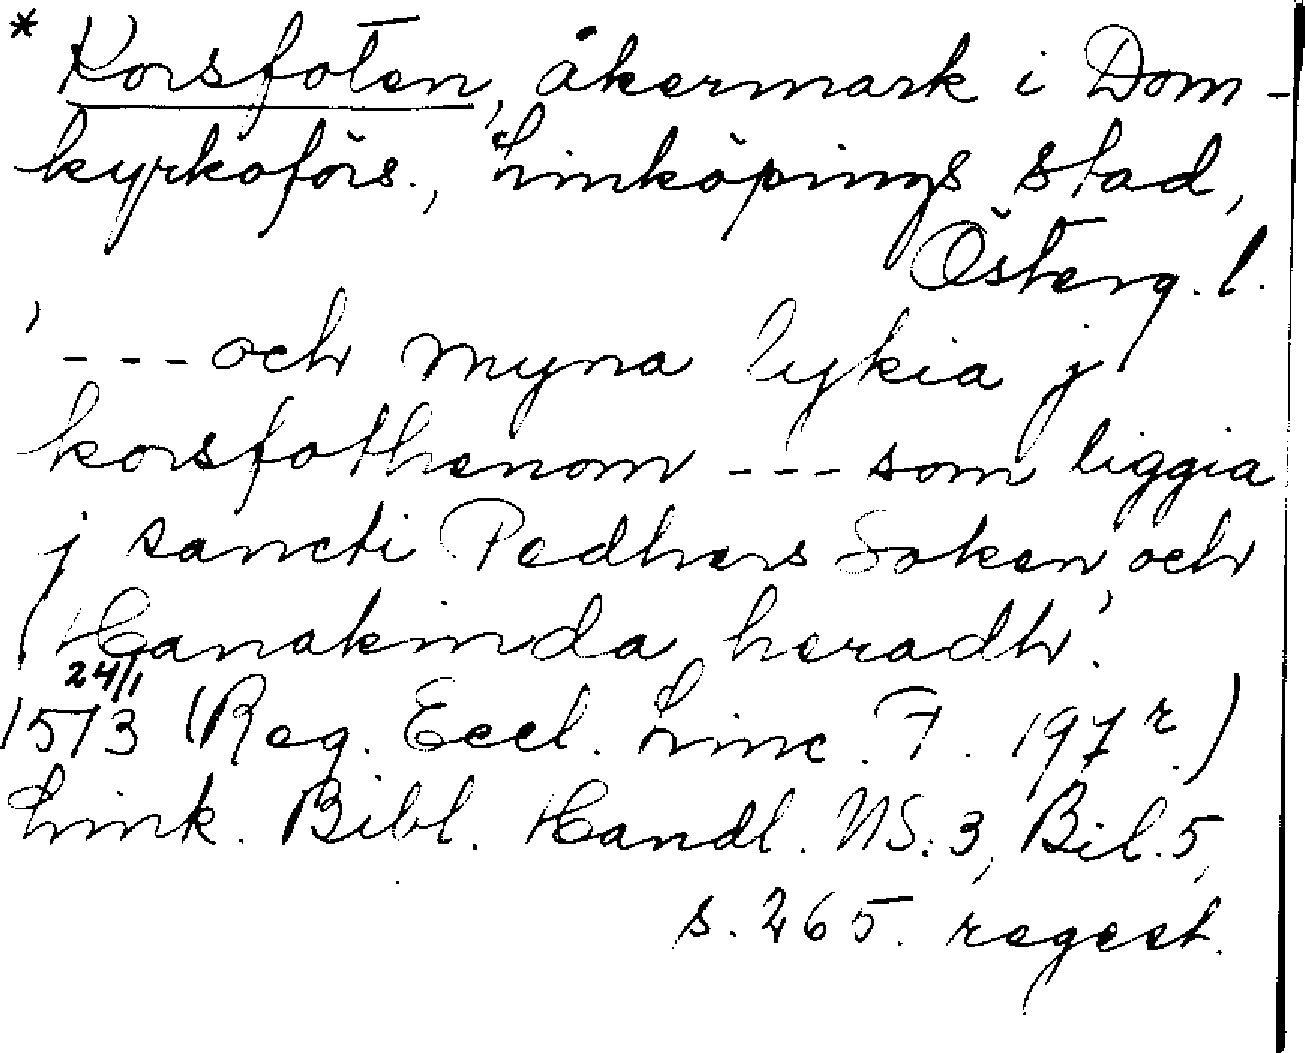 * Korsfoten, åkermark i Dom-
kyrkoförs., Linköpings stad,
Österg. l.
' --- och myna lykia j
korsfothenom --- som liggia
j sancti Pedhers Soken och
Hanakinda heradh'.
24/1
1513 (Reg. Eccl. Linc. F. 197 r.)
Link. Bibl. Handl. NS: 3, Bil. 5,
s. 265. regest.